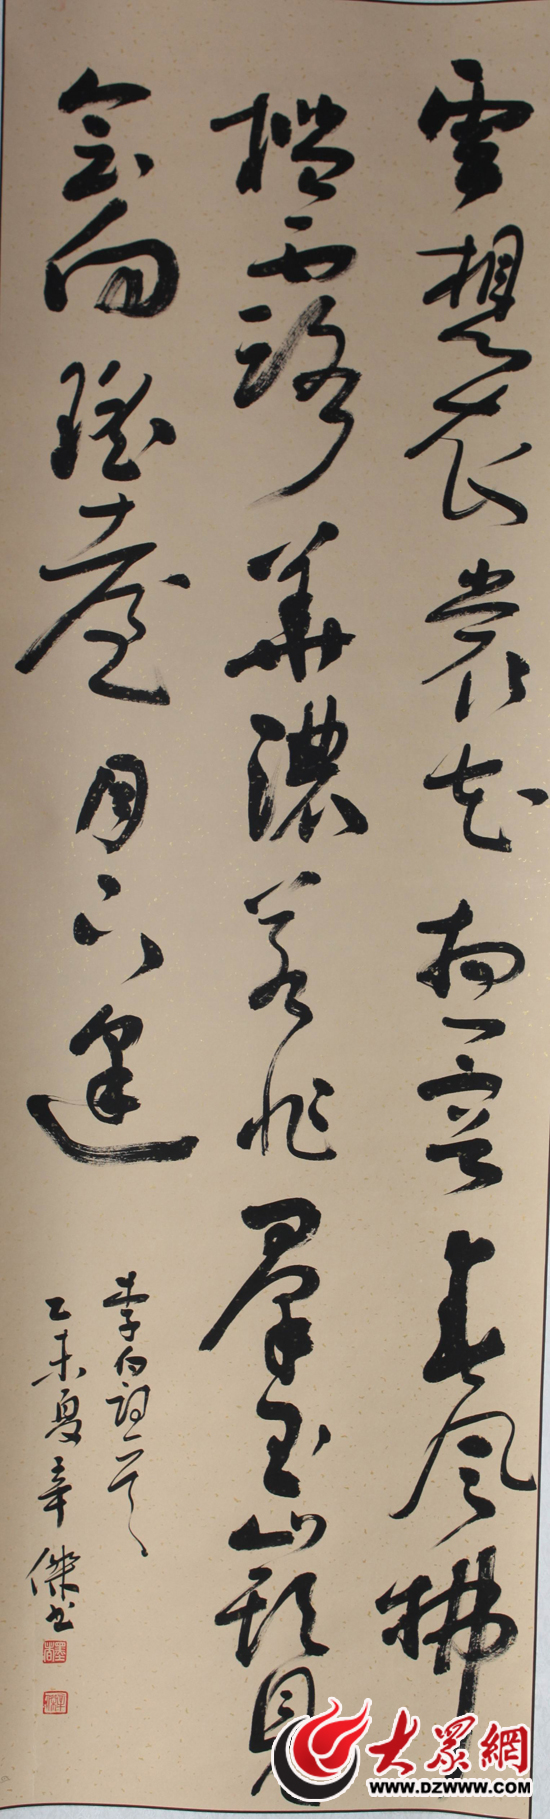 雲想衣裳花想容春風拂
檻露華濃若非群玉山頭見
會向瑤臺月下逢
李白詩一首
乙未夏辛傑书
大眾網
WWW.DZWWW.COM